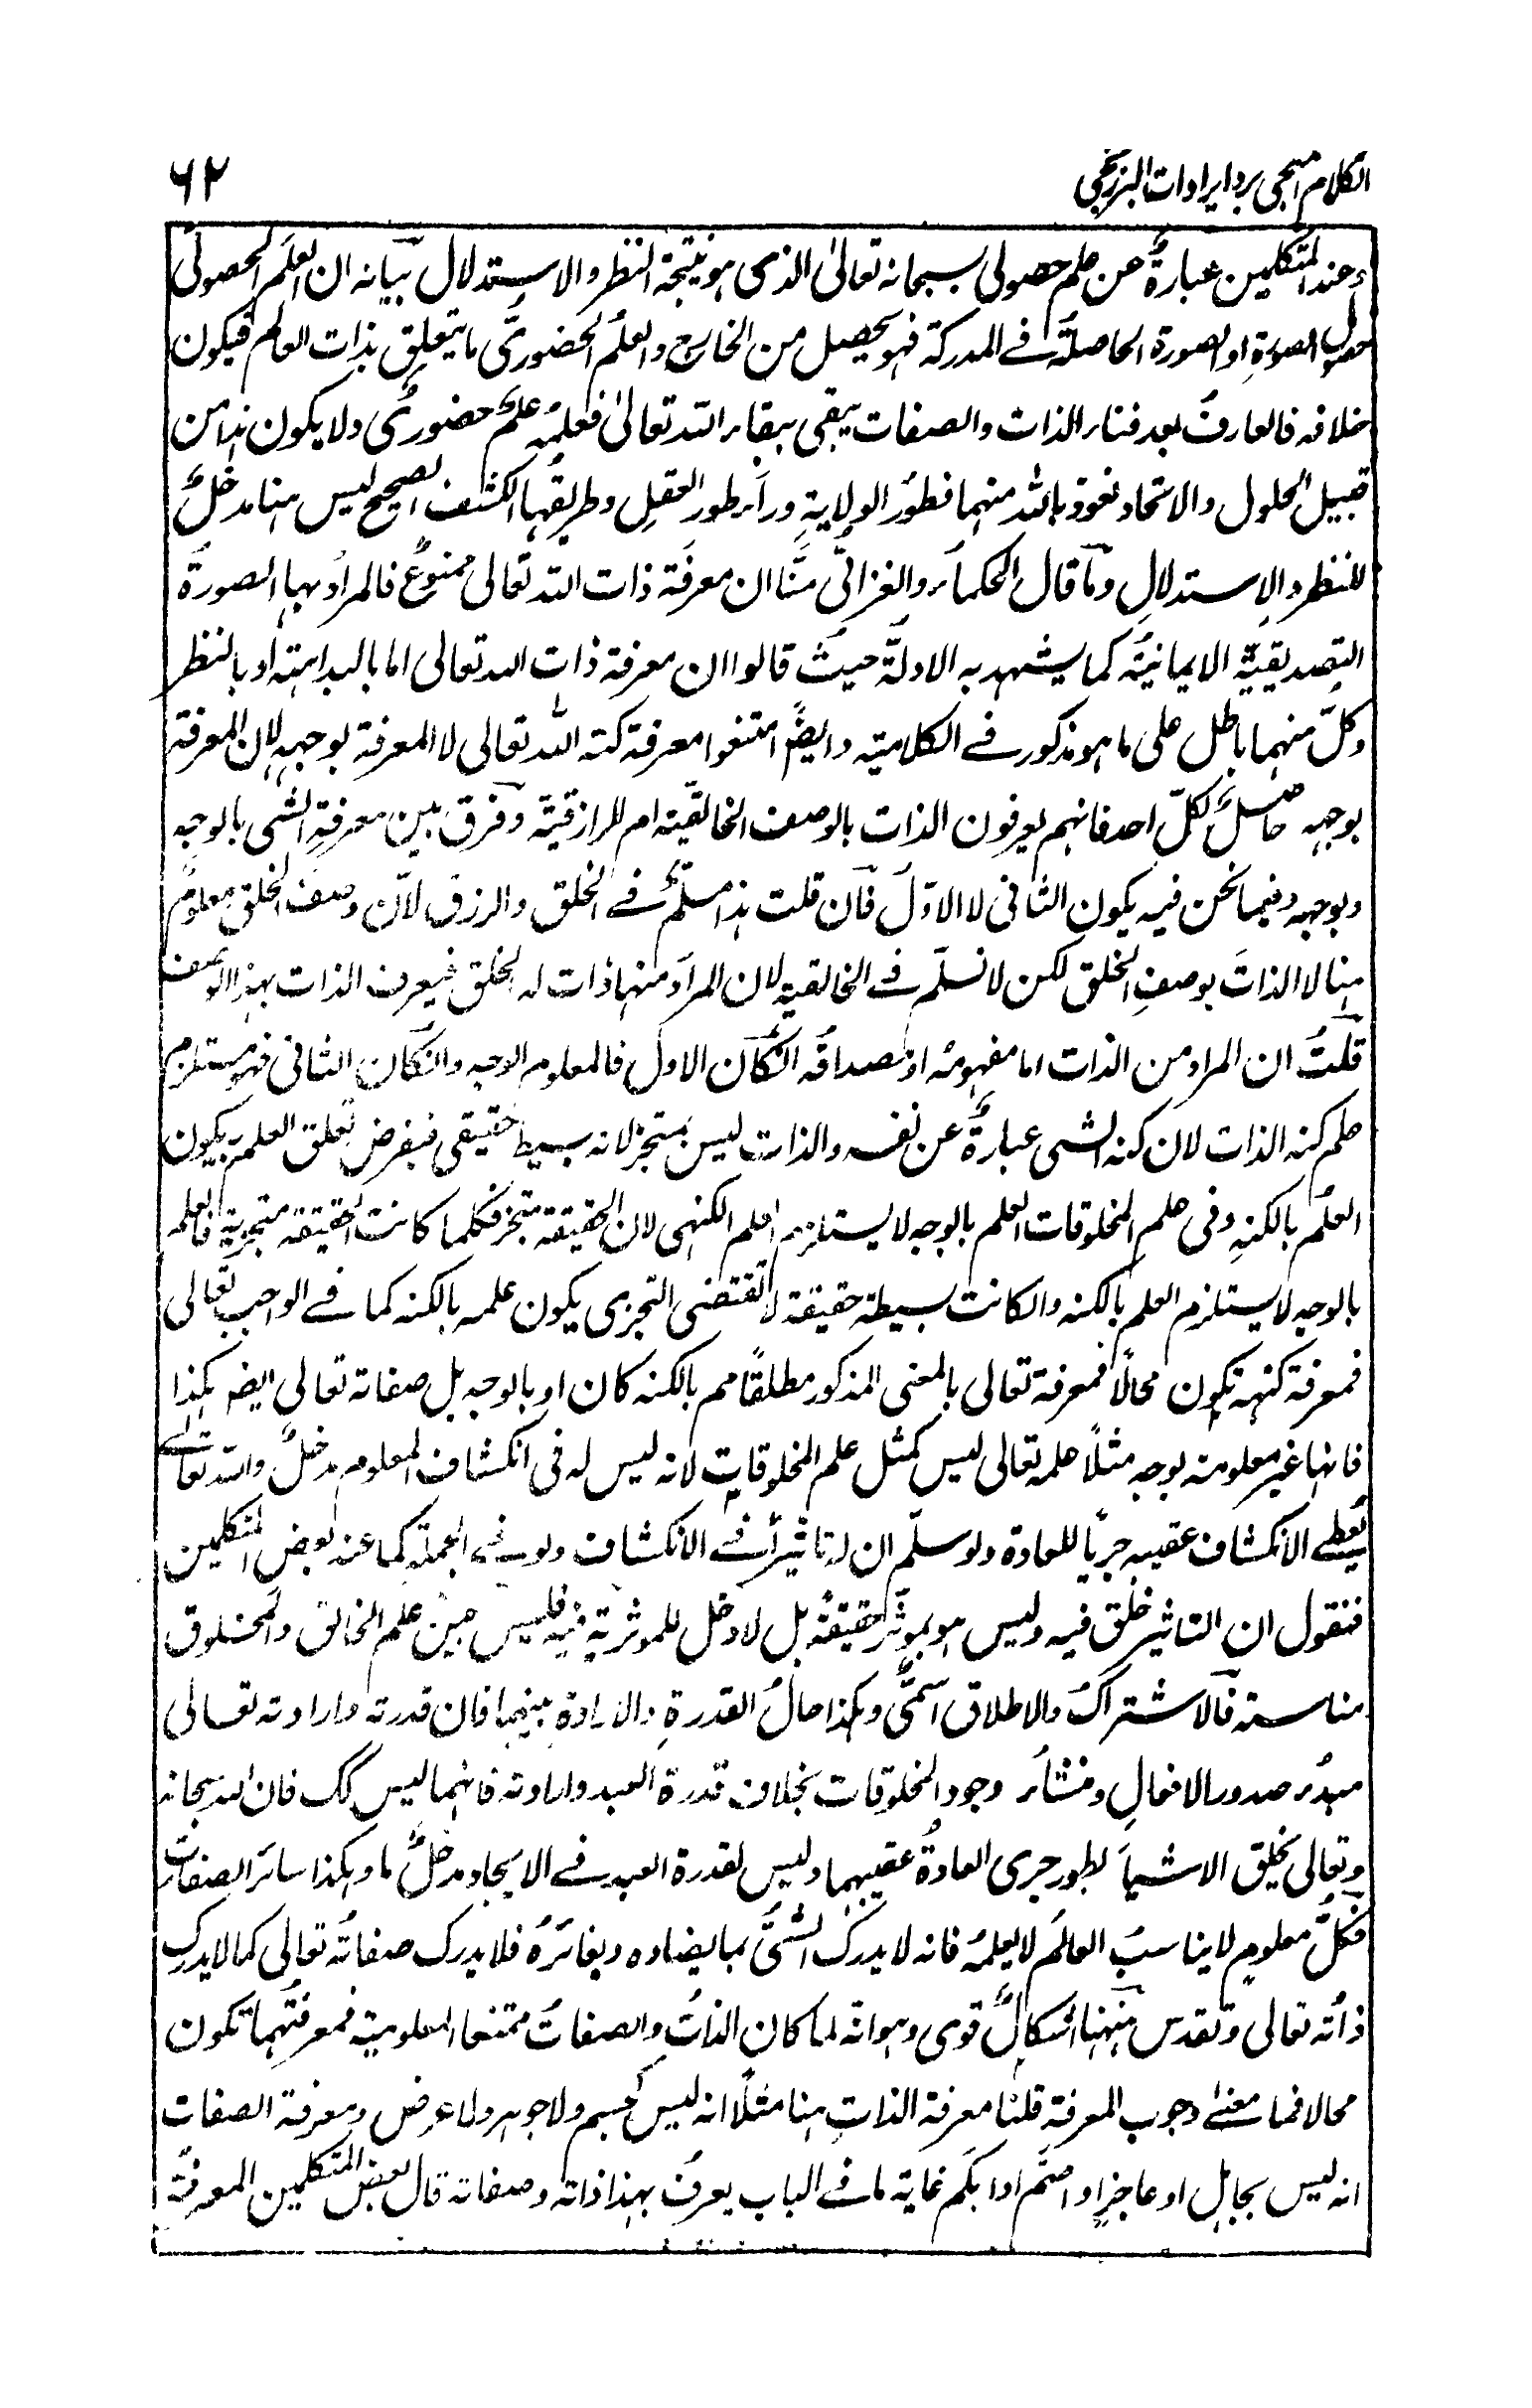 الكلام المنجى برد ايرادات البرزنجى
٦٢
وعند المتكلمين عبارةٌ عن علم حصولى بسبحانه تعالىٰ الذى هو نتيجة النظر والاستدلال بيانه ان العلم الحصولى
حصول الصورةِ او الصورة الحاصلة فى المدركة فهو يحصل من الخارج والعلم الحضورىّ ما يتعلق بذات العالم فيكون
خلافه فالعارفُ بعد فناء الذات والصفات يبقى ببقاء الله تعالىٰ فعلمه علمٌ حضورىٌ ولا يكون هذا من
قبيل الحلول والاتحاد نعوذ بالله منهما فطورُ الولايةِ وراء طور العقلِ وطريقُها الكشف الصحيح ليس هنا مدخلٌ
للنظر والاِستدلالِ وما قال الحكماء والغزالىّ منّا ان معرفَة ذات الله تعالى ممنوعٌ فالمرادُ بها الصورةُ
التصديقيةُ الايمانيةُ كما يشهد به الادلّة حيثُ قالوا ان معرفة ذات الله تعالى اما بالبداهة او بالنظر
وكلّ منهما باطل على ما هو مذكور فے الكلامية وايضًا امتنعوا معرفة كنه الله تعالى لا المعرفة بوجههِ لان المعرفة
بوجهه حاصلٌ لكلّ احد فانهم يعرفون الذات بالوصف الخالقية ام الرازقيّة وفرق بين معرفةِ الشى بالوجه
وبوجهه وفيما نحن فيه يكون الثانى لا الاوّل فان قلت هذا مسلّمٌ فے الخلق والرزق لانّ وصفَ الخلق معلومٌ
هنا لا الذاتَ بوصفِ الخلق لكن لا نسلّم فے الخالقية لان المرادَ منها ذات له الخلق فيعرف الذات بهذا الوصف
قلتُ ان المراد من الذات اما مفهومُه او مصداقُه انكان الاول فالمعلوم الوجه وانكان الثانى فهو مستلزم
علم كنه الذات لان كنه الشى عبارةٌ عن نفسه والذات ليس بمتجز لانه بسيط حقيقى فبفرض تعلق العلم به يكون
العلمُ بالكنهِ وفى علم المخلوقات العلم بالوجه لا يستلزم العلم الكنهى لان الحقيقة متجز فكلما كانت الحقيقة متجزية فالعلم
بالوجه لا يستلزم العلم بالكنه وانكانت بسيطة حقيقة لا تقتضى التجزى يكون علمه بالكنه كما فے الواجب تعالى
فمعرفة كنهه تكون محالًا فمعرفة تعالى بالمعنى المذكور مطلقًا مم بالكنه كان او بالوجه بل صفاته تعالى ايضا هكذا
فانها غير معلومة بوجه مثلًا علمه تعالى ليس كمثل علم المخلوقات لانه ليس له فى انكشاف المعلوم مدخلٌ والله تعالے
يُعطے الانكشاف عقيبه جريًا للعادة ولو سلّم ان له تاثيرًا فے الانكشاف ولو فے الجملة كما عند بعض المتكلمين
فنقول ان التاثير خلق فيه وليس هو بموثّر حقيقةً بل لا دخل للموثرية فيه فليس بين علم الخالق والمخلوق
مناسبة فالاشتراكُ والاطلاق اسمىٌّ وهكذا حالُ القدرةِ والارادةِ بينهما فان قدرته وارادته تعالى
مبدء صدور الافعالِ ومنشاء وجود المخلوقات بخلاف قدرة العبد وارادته فانهما ليس كك فان الله سبحانه
وتعالى يخلق الاشياءَ بطور جرى العادةُ عقيبهما وليس لقدرة العبد فے الايجاد مدخلٌ ما وهكذا سائر الصفات
فكلُّ معلومٍ لا يناسبُ العالمَ لا يعلمُه فانه لا يدرك الشىُ بما يضاده ويغائرُه فلا يدرك صفاتُه تعالى كما لا يدرك
ذاتُه تعالى وتقدس فهٰهنا اشكالٌ قوى وهو انّه لما كان الذاتُ والصفاتُ ممتنعا المعلومية فمعرفتُهما تكون
محالا فما معنے وجوب المعرفة قلنا معرفة الذاتِ هنا مثلًا انه ليس كجسم ولا جوهر ولا عرض ومعرفة الصفات
انه ليس بجاهلٍ او عاجزٍ او اصمّ او ابكم غاية ما فے الباب يعرف بهذا ذاته وصفاته قال بعض المتكلمين المعرفةُ